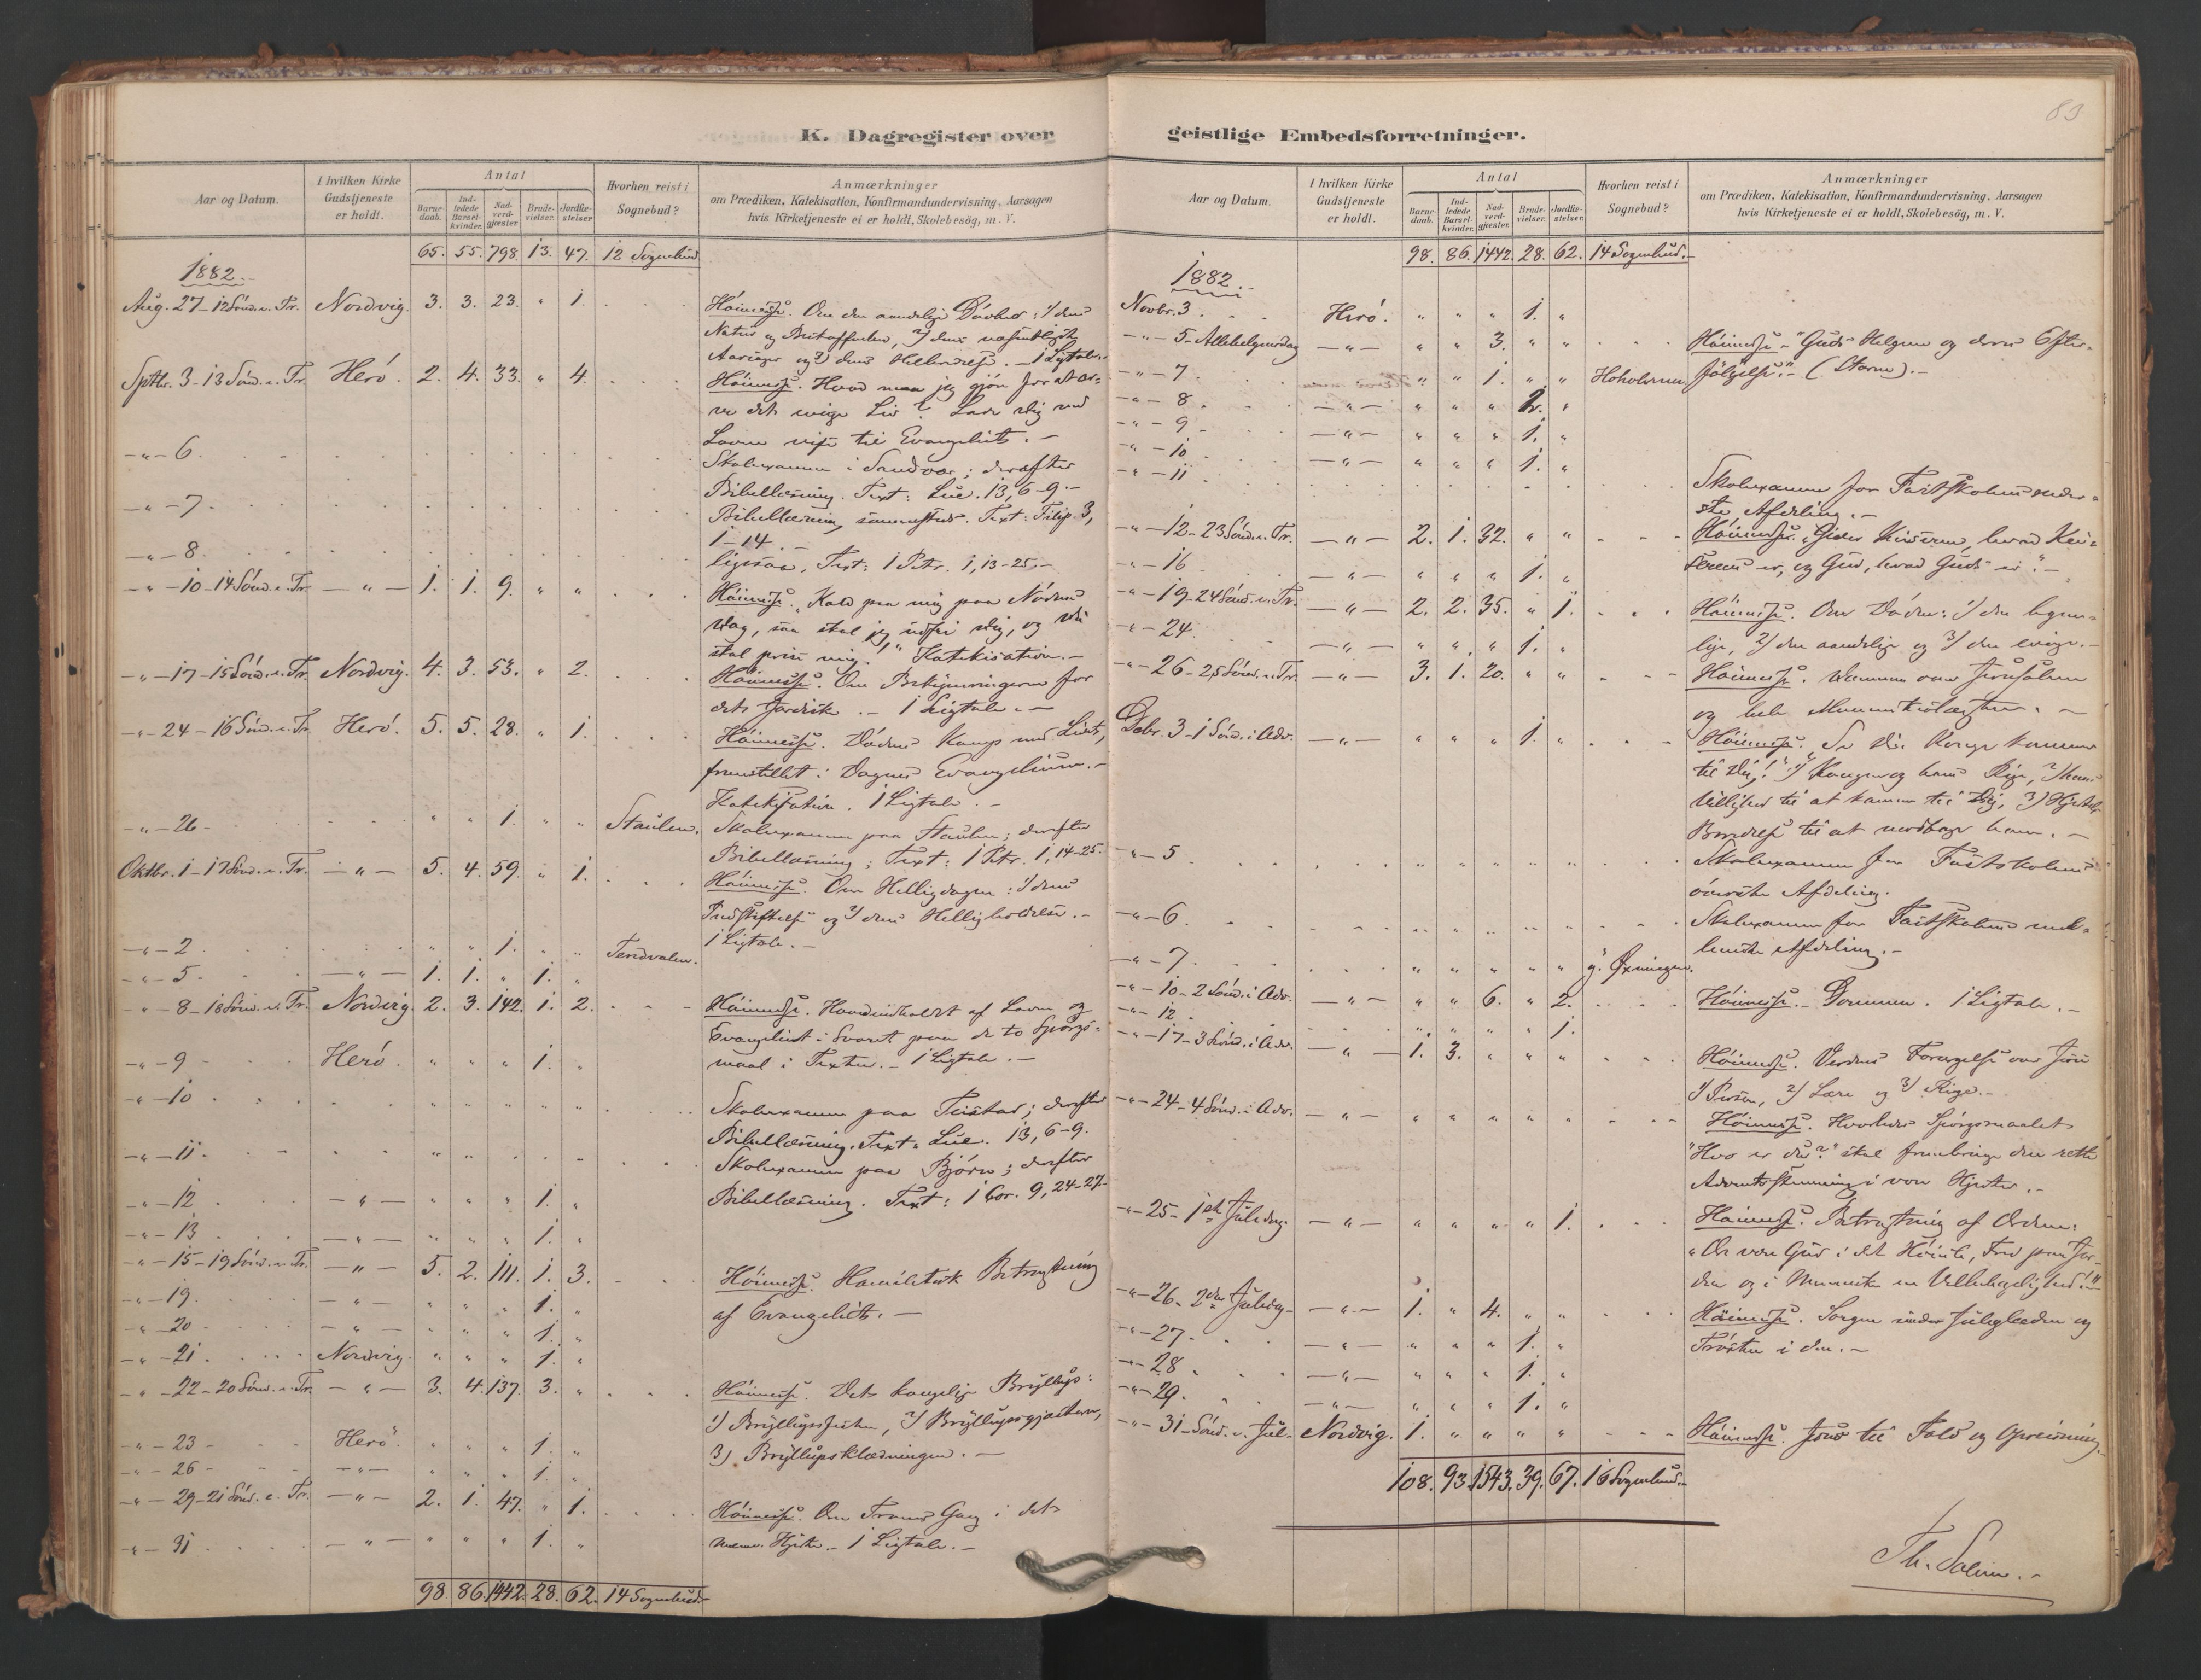 83
K. Dagregister over geistlige Embedsforretninger.
Aar og Datum.
I hvilken Kirke Gudstjeneste er holdt.
Antal
Barne-daab.
Ind-ledede Barsel-kvinder.
Nad-verd-gjæster.
Brude-vielser.
Jordfæ-stelser
Hvorhen reist i Sognebud?
Anmærkninger
om Prædiken, Katekisation, Konfirmandundervisning, Aarsagen
hvis Kirketjeneste ei er holdt, Skolebesög, m. V.
65. 55. 798. 13. 47. 12 Sognebud
1882.
Aug. 27 - 12 Sönd. e. Tr. Nordvig. 3. 3. 23. " 1. Höimesse. Om den aandelige Dövhed: 1/ dens
Natur og Beskaffenhed, 2/ dens væsentligste
Aarsager og 3/ dens Helbredelse. - 1 Ligtale.
Septbr. 3 - 13 Sönd. e. Tr. Herö. 2. 4. 33. " 4. Höimesse. Hvad maa jeg gjöre for at ar-
ve det evige Liv? Lade dig ved
Loven vise til Evangeliet. -
-"- 6. Skolexamen i Sandvær; derefter
Bibellæsning. Text: Luc. 13, 6-9. -
-"- 7. Bibellæsning sammesteds. Text: Filip. 3,
1-14. -
-"- 8. ligesaa, Text: 1 Petr. 1, 13-25. -
-"- 10 - 14 Sönd. e. Tr. -"- 1. 1. 9. " " Höimesse. "Kald paa mig paa Nödens
Dag, saa skal jeg udfri dig, og du
skal prise mig." Katekisation. -
-"- 17 - 15 Sönd. e. Tr. Nordvig. 4. 3. 53. " 2. Höimesse. Om Bekymringerne for
det Jordiske. - 1 Ligtale. -
-"- 24 - 16 Sönd. e. Tr. Herö. 5. 5. 28. " 1. Höimesse. Dödens Kamp med Livet,
fremstillet i Dagens Evangelium. -
Katekisation. 1 Ligtale. -
-"- 26 - " " 1. " " Staulen. Skolexamen paa Staulen; derefter
Bibellæsning; Text: 1 Petr. 1, 14-25.
Oktbr. 1 - 17 Sönd. e. Tr. -"- 5. 4. 59. " 1. Höimesse. Om Helligdagen: 1/ dens
Indstiftelse og 2/ dens Helligholdelse. -
1 Ligtale. -
-"- 2 " " 1. " " Tendvalen.
-"- 5 - -"- 1. 1. " 1. "
-"- 8 - 18 Sönd. e. Tr. Nordvig. 2. 3. 142. 1. 2. Höimesse. Hovedindholdet af Loven og
Evangeliet i Svaret paa de to Spörgs-
maal i Texten. - 1 Ligtale. -
-"- 9 - Herö. " " " 1. "
-"- 10 " " " " " Skolexamen paa Teistad; derefter
Bibellæsning. Text: Luc. 13, 6-9.
-"- 11. Skolexamen paa Björn; derefter
Bibellæsning. Text: 1 Cor. 9, 24-27.
-"- 12 -"- " " " 1. "
-"- 13 -"- " " " 1. "
-"- 15 - 19 Sönd. e. Tr. -"- 5. 2. 111. 1. 3. Höimesse. Homiletisk Betragtning
af Evangeliet. -
-"- 19 -"- " " " 1. "
-"- 20 -"- " " " 1. "
-"- 21. Nordvig. " " " 1. "
-"- 22 - 20 Sönd. e. Tr. -"- 3. 4. 137. 3. " Höimesse. Det kongelige Bryllup:
1) Bryllupsfesten, 2) Bryllupsgjæsterne,
3) Bryllupsklædningen. -
-"- 23 - Herö. " " " 1. "
-"- 26 - -"- " " " 1. "
-"- 29 - 21 Sönd. e. Tr. -"- 2. 1. 47. " 1. Höimesse. Om Troens Gang i det
menn. Hjerte. - 1 Ligtale. -
-"- 31 -"- " " " 1. "
98. 86. 1442. 28. 62. 14 Sognebud
Aar og Datum.
I hvilken Kirke Gudstjeneste er holdt.
Antal
Barne-daab.
Ind-ledede Barsel-kvinder.
Nad-verd-gjæster.
Brude-vielser.
Jordfæ-stelser.
Hvorhen reist i Sognebud?
Anmærkninger
om Prædiken, Katekisation, Konfirmandundervisning, Aarsagen
hvis Kirketjeneste ei er holdt, Skolebesög, m. V.
98. 86. 1442. 28. 62. 14 Sognebud. -
1882.
Novbr. 3 Herö. " " " 1. "
-"- 5 - Allehelgensdag -"- " " 3. " " Höimesse. - "Guds Helgen og deres Efter-
fölgelse." - (Storm). -
-"- 7 " " 1. " " Hoholmen.
-"- 8 -"- " " " 2. "
-"- 9 -"- " " " 1. "
-"- 10 -"- " " " 1. "
-"- 11 Skolexamen for Fastskolens neder-
ste Afdeling. -
-"- 12 - 23 Sönd. e. Tr. -"- 2. 1. 32. " " Höimesse. "Giver Keiseren, hvad Kei-
serens er, og Gud, hvad Guds er". -
-"- 16 -"- " " " 1. "
-"- 19 - 24 Sönd. e. Tr. -"- 2. 2. 35. " 1. Höimesse. Om Döden: 1/ den legem-
lige, 2/ den aandelige og 3/ den evige. -
-"- 24 -"- " " " 1. "
-"- 26 - 25 Sönd. e. Tr. -"- 3. 1. 20. " " Höimesse. Dommen over Jerusalem
og hele Menneskeslægten. -
Decbr. 3 - 1 Sönd. i Adv. -"- " " " 1. " Höimesse. "Se din Konge kommer
til dig!" 1/ Kongen og hans Rige, 2/ hans
Villighed til at komme til dig, 3) Hjertets
Beredelse til at modtage ham. -
-"- 5 " " " " " Skolexamen for Fastskolens
överste Afdeling.
-"- 6 Skolexamen for Fastskolens mel-
lemste Afdeling. -
-"- 7 " " " " " Öxningen.
-"- 10 - 2 Sönd. i Adv. -"- " " 6. " 2. Höimesse. - Dommen. 1 Ligtale. -
-"- 12 " " " " 1.
-"- 17 - 3 Sönd. i Adv. -"- 1. 3. " " " Höimesse. Verdens Forargelse over Jesu
1/ Person, 2/ Lære og 3/ Rige. -
-"- 24 - 4 Sönd. i Adv. -"- " " " " " Höimesse. Hvorledes Spörgsmaalet
"Hvo er du?" skal frembringe den rette
Adventsstemning i vore Hjerter. -
-"- 25 - 1ste Juledag. -"- " " " " 1. Höimesse. Betragtning af Ordene:
"Ære være Gud i det Höieste, Fred paa Jor-
den og i Mennesker en Velbehagelighed!"
-"- 26 - 2den Juledag - -"- 1. " 4. " " Höimesse. Sorgen under Juleglæden og
Trösten i den. -
-"- 27 - -"- " " " 1. "
-"- 28 -"- " " " 1. "
-"- 29. -"- " " " 1. "
-"- 31 - Sönd. e. Jul - Nordvig. 1. " " " " Höimesse. Jesus til Fald og Opreisning.
108. 93. 1543. 39. 67. 16 Sognebud. -